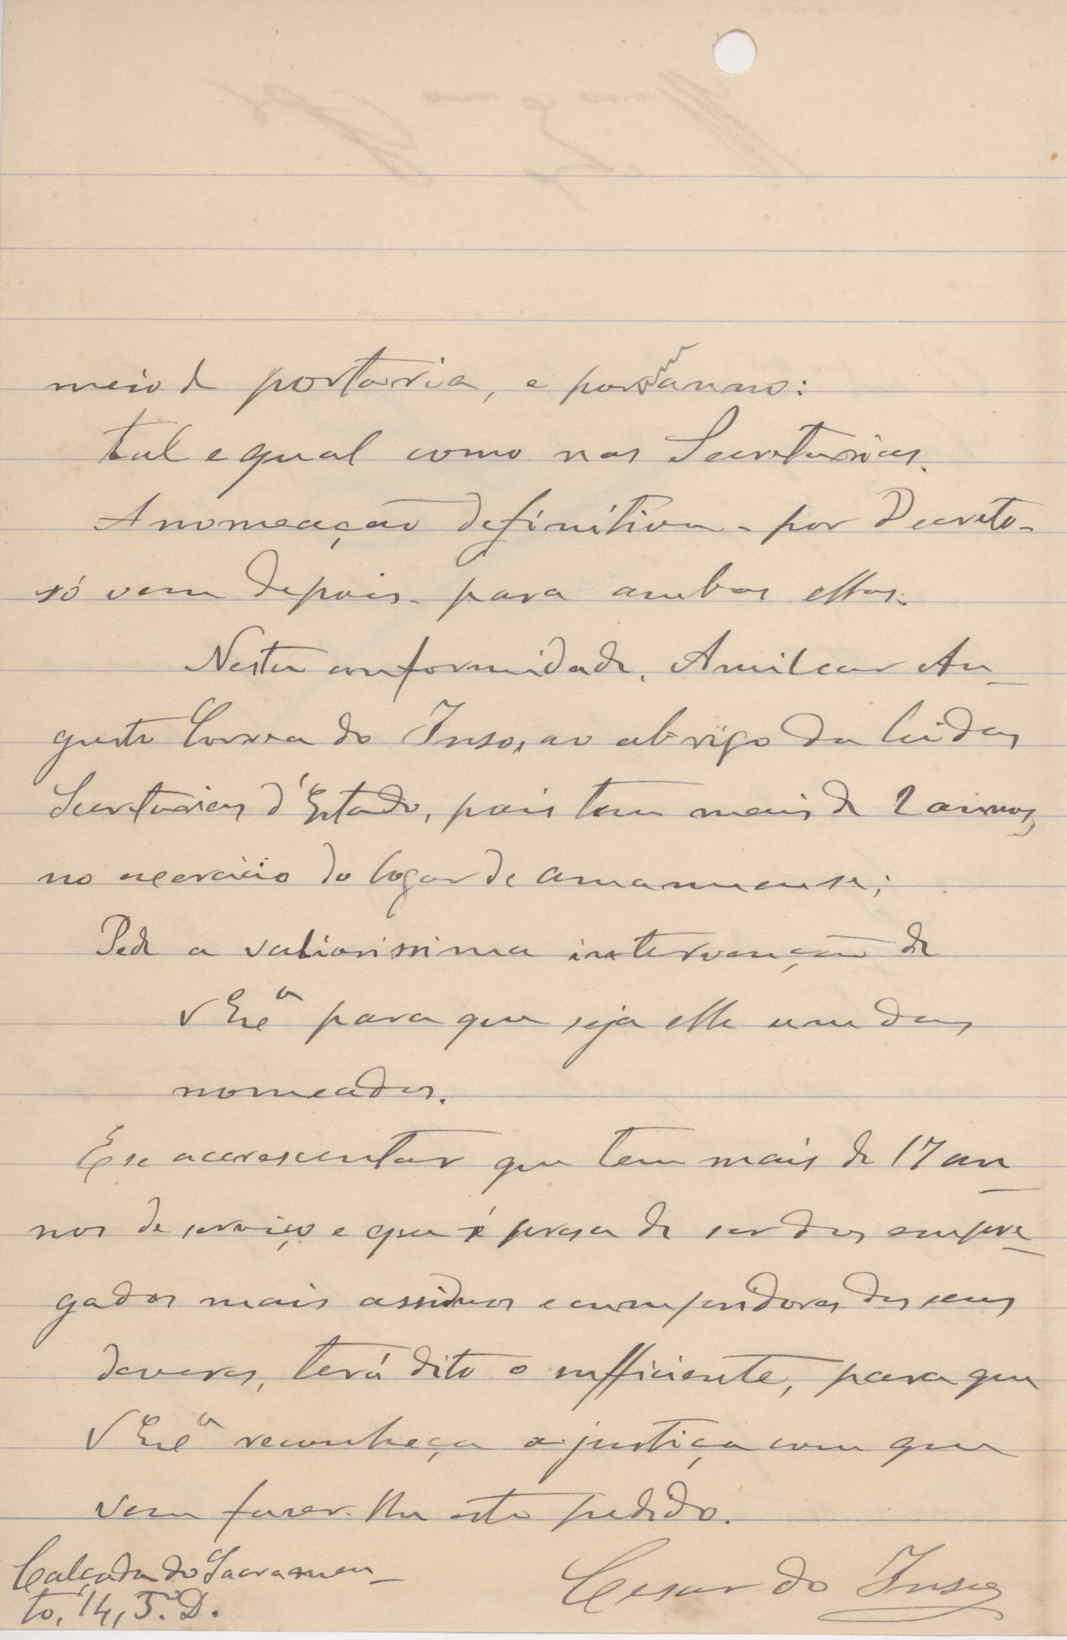 meio de portaria, e por um anno:
tal e qual como nas Secretarias.
A nomeação definitiva - por Decreto -
só vem depois - para ambos elles.
Nesta conformidade, Amilcar Au-
gusto Correa do Inso, ao abrigo da lei das
Secretarias d'Estado, pois tem mais de 2 annos,
no exercicio do logar de amanuense;
Pede a valiosissima intervenção de
V Exª para que seja elle um dos
nomeados.
E se accrescentar que tem mais de 17 an-
nos de serviço e que é preza de ser dos empre-
gados mais assiduos e cumpridores dos seus
deveres, terá dito o sufficiente, para que
V Exª reconheça a justiça com que
vem fazer-lhe este pedido.
Calçada do Sacramen-
to, 14, 5.º D.
Cesar do Inso